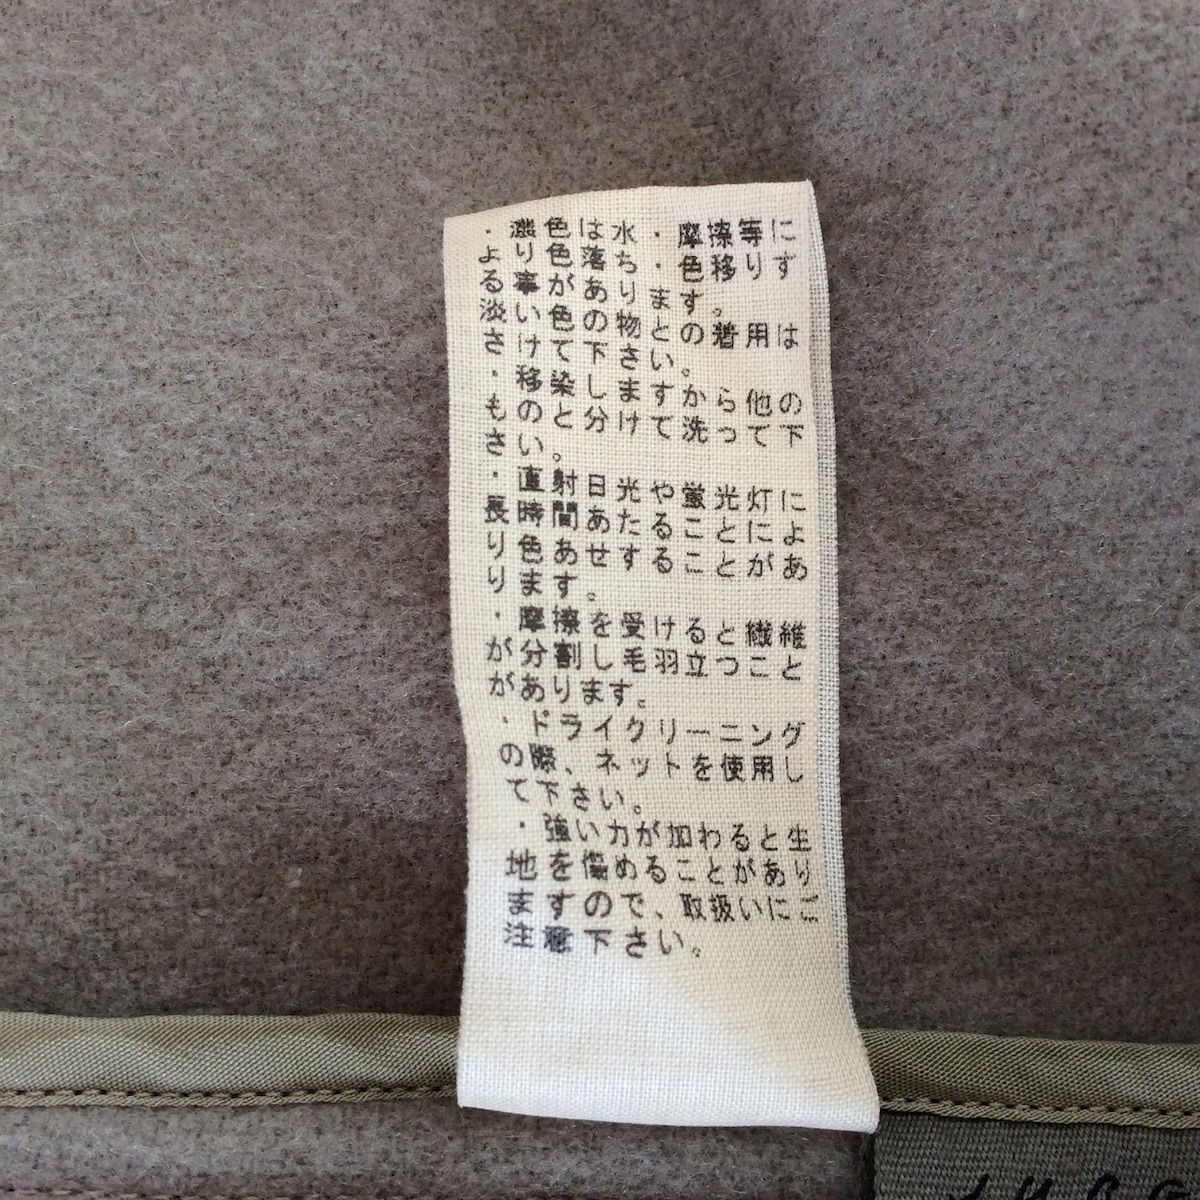 ・濃色は水・摩擦等に
より色落ち・色移りす
る事があります。
淡い色の物との着用は
さけて下さい。
・移染しますから他の
ものと分けて洗って下
さい。
・直射日光や蛍光灯に
長時間あたることによ
り色あせすることがあ
ります。
・摩擦を受けると繊維
が分割し毛羽立つこと
があります。
・ドライクリーニング
の際、ネットを使用し
て下さい。
・強い力が加わると生
地を傷めることがあり
ますので、取扱いにご
注意下さい。